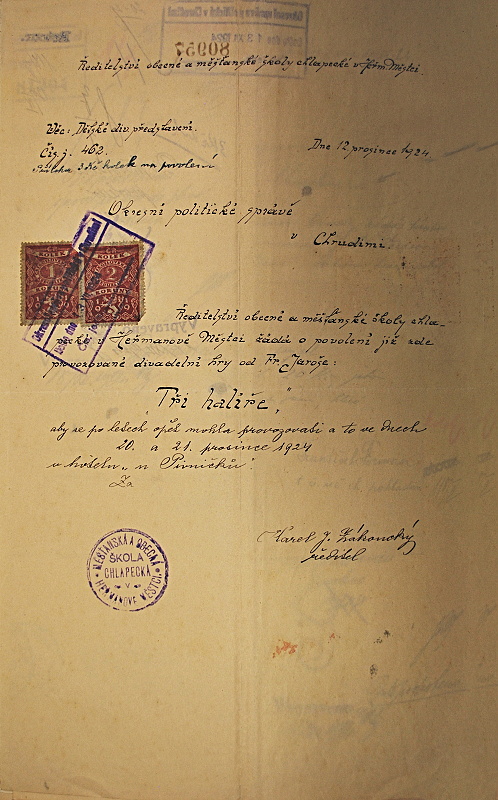 80957
Ředitelství obecné a měšťanské školy chlapecké v Heřm. Městci
Věc: Dětské div. představení.
Čís. j. 462.
Dne 12 prosince 1924
Příloha 3 Kč kolek na povolení
Okresní politické správě
v Chrudimi.
KOLEK
1
KOLEK
2
Ředitelství obecné a měšťanské školy chla-
pecké v Heřmanově Městci žádá o povolení již zde
provozované divadelní hry od Fr. Jaroše:
„Tři halíře,"
aby se po letech opět mohla provozovati a to ve dnech
20. a 21. prosince 1924
v hotelu „u Pivničků".
Za
Karel J. Zákonský
ředitel
MĚŠŤANSKÁ A OBECNÁ
ŠKOLA
CHLAPECKÁ
V
HEŘMANOVĚ MĚSTCI